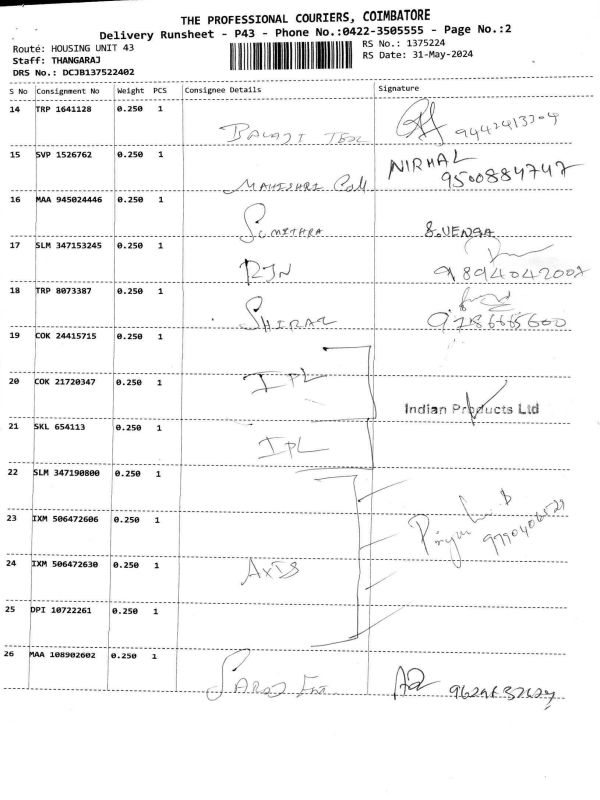 THE PROFESSIONAL COURIERS, COIMBATORE
Delivery Runsheet - P43 - Phone No.:0422-3505555 - Page No.:2
Route: HOUSING UNIT 43
RS No.: 1375224
Staff: THANGARAJ
RS Date: 31-May-2024
DRS No.: DCJB137522402
S No Consignment No Weight PCS Consignee Details Signature
14 TRP 1641128 0.250 1
BALAJI 9442413304
15 SVP 1526762 0.250 1 NIRMAL
9500884747
16 MAA 945024446 0.250 1
SUMITHRA S.VENGA
17 SLM 347153245 0.250 1
RJN 9894042007
18 TRP 8073387 0.250 1
SHIRAZ
19 COK 24415715 0.250 1
20 COK 21720347 0.250 1 IPL
Indian Products Ltd
21 SKL 654113 0.250 1
IPL
22 SLM 347190800 0.250 1
23 IXM 506472606 0.250 1
24 IXM 506472630 0.250 1 AXIS
25 DPI 10722261 0.250 1
26 MAA 108902602 0.250 1
SAROJ